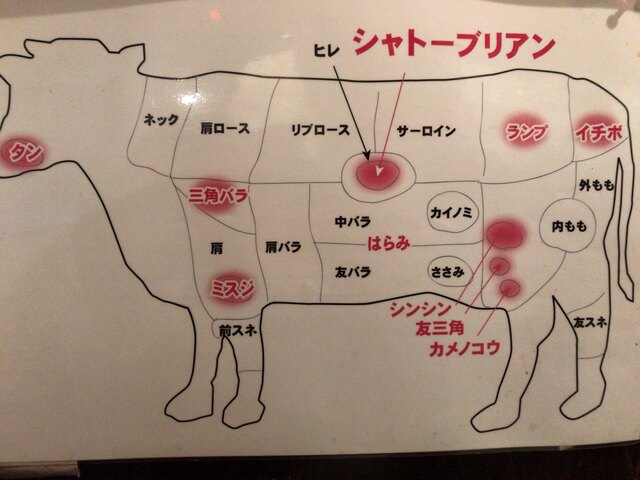 ヒレ
シャトーブリアン
ネック
肩ロース
リブロース
サーロイン
ランプ
イチボ
タン
三角バラ
外もも
中バラ
カイノミ
内もも
肩
肩バラ
はらみ
友バラ
ささみ
ミスジ
シンシン
友三角
カメノコウ
前スネ
友スネ